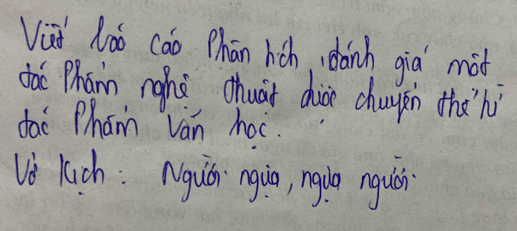 Viết báo cáo phân tích, đánh giá một
tác phẩm nghệ thuật được chuyển thể từ
tác phẩm văn học.
Vở kịch: Người ngựa, ngựa người.